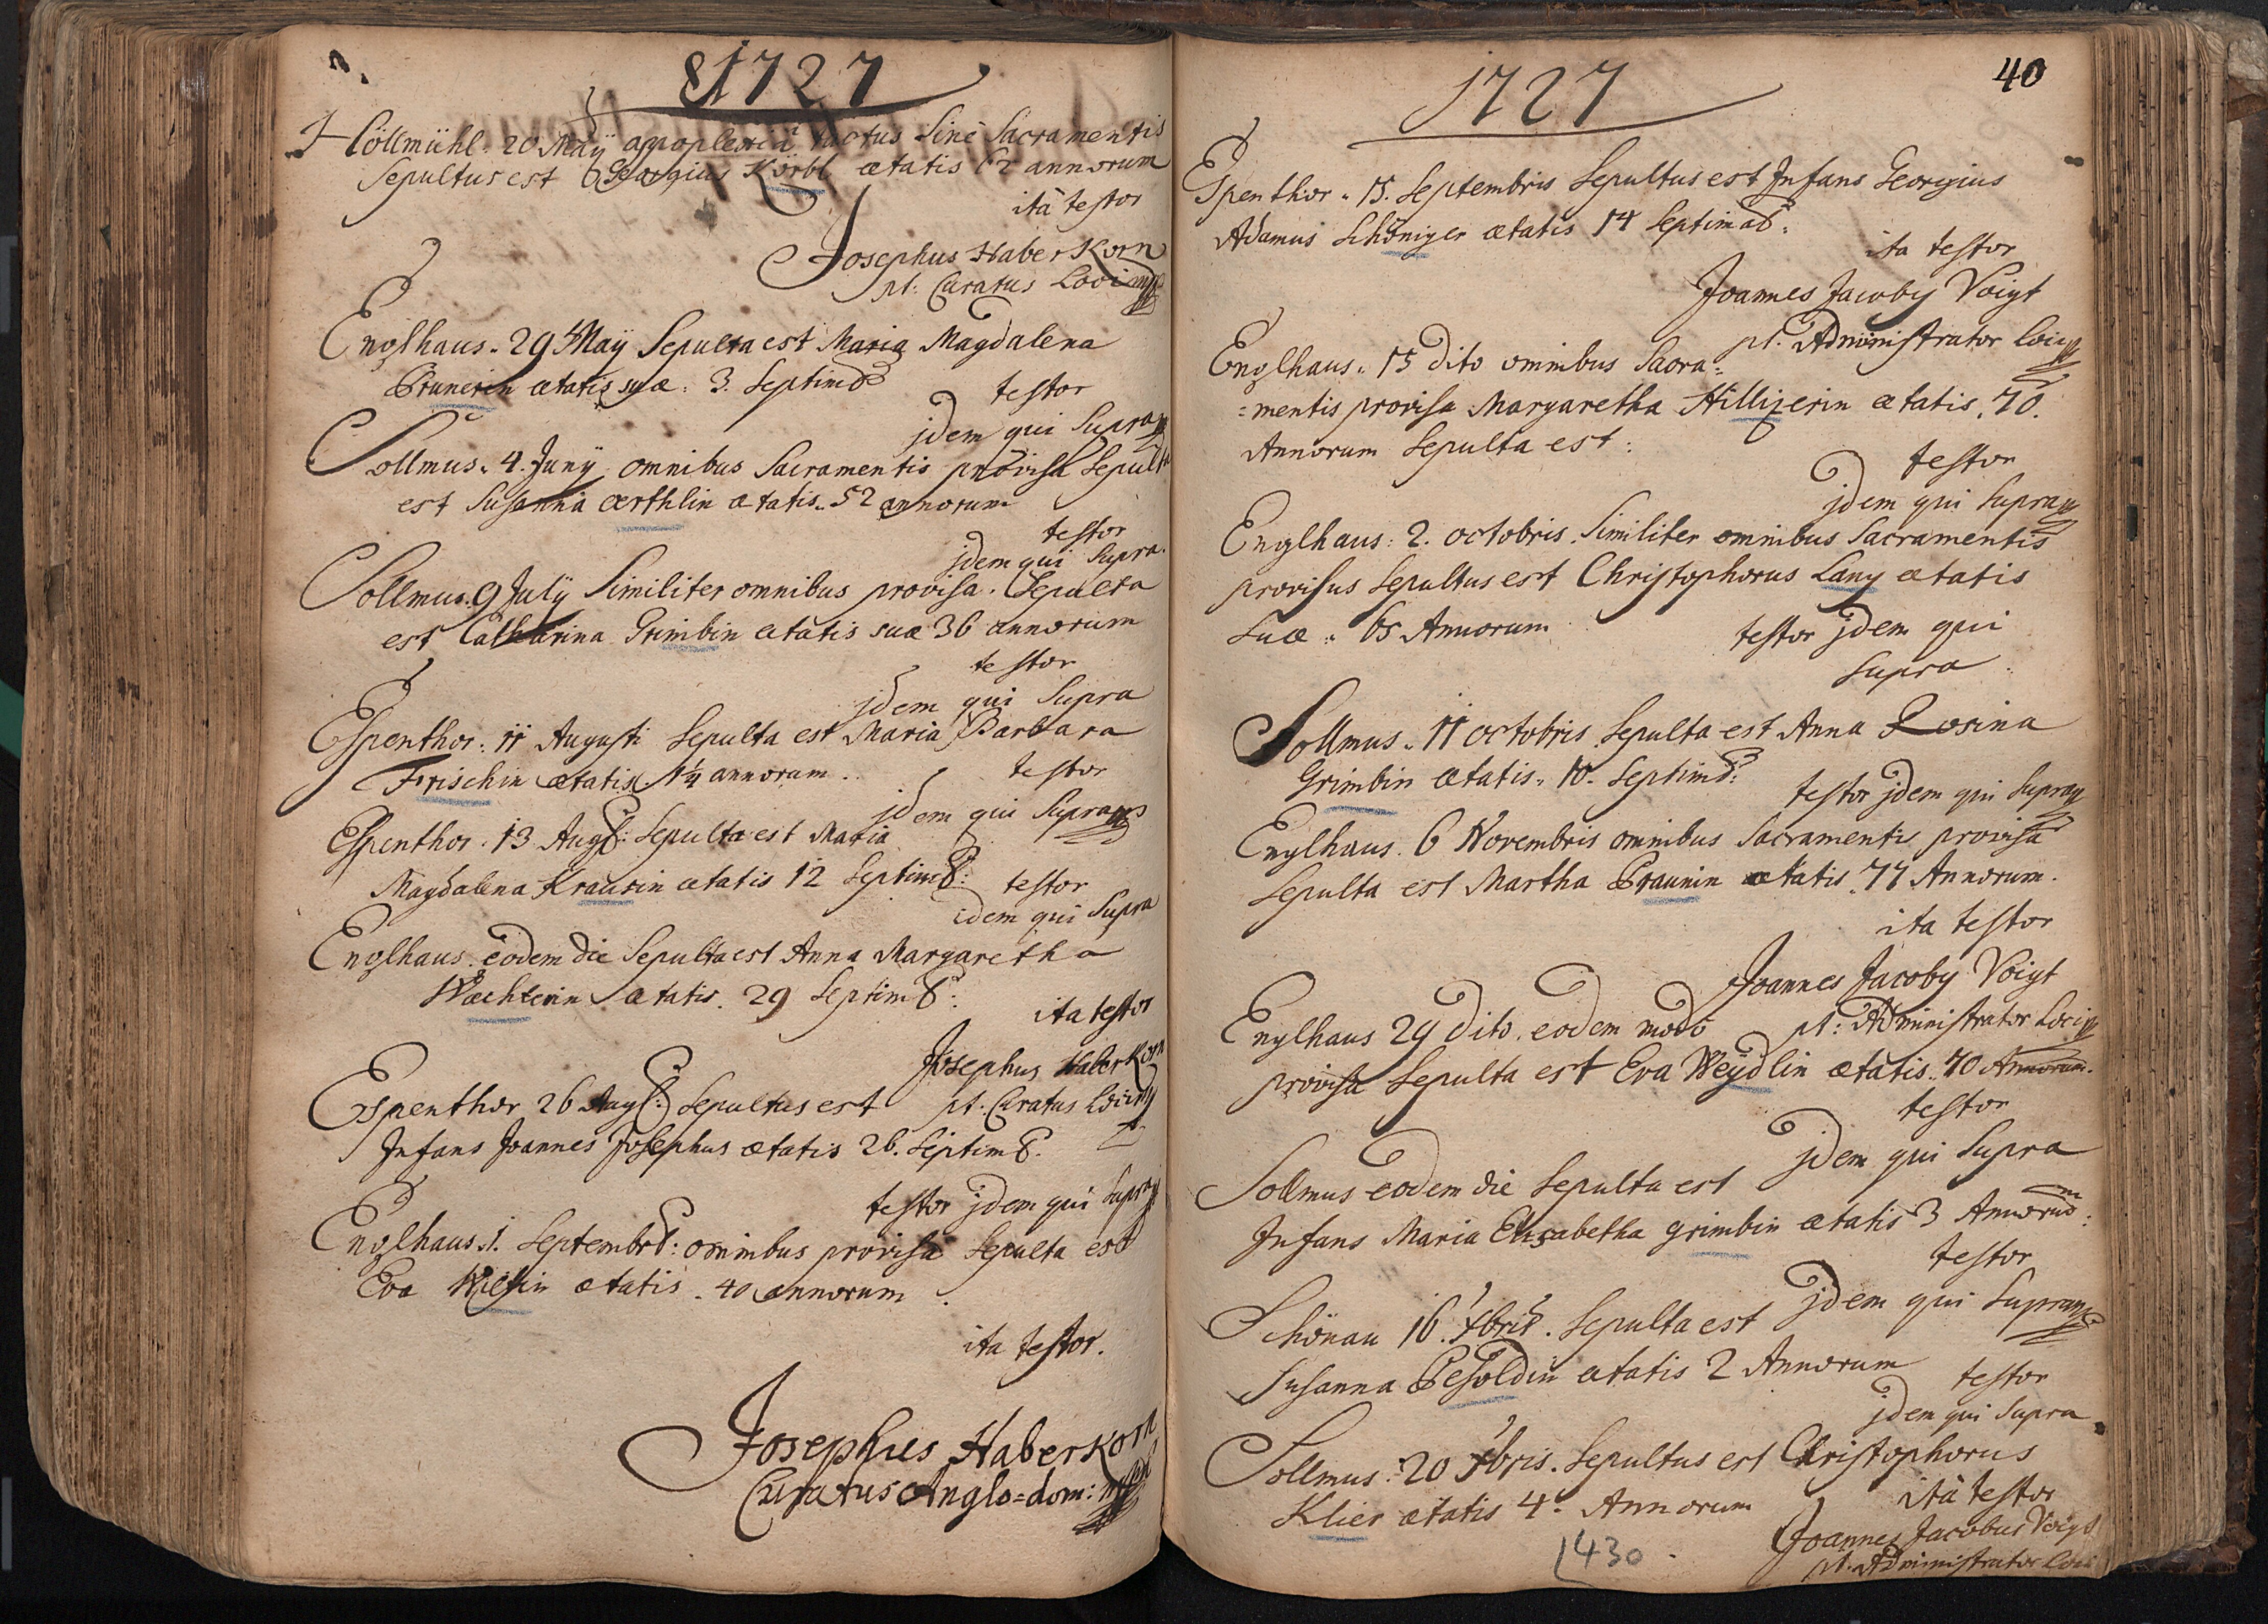 1727
Höllmühl. 20 Maÿ appoplexiâ tactus sine Sacramentis
Sepultus est Georgius Körbl ætatis 62 annorum
ità testor
Josephus Haberkorn
pt: Curatus Loci
Englhaus. 29 Maÿ Sepulta est Maria Magdalena
Prunerin ætatis suæ: 3. Septim
testor
jdem qui Supra
Sollmus. 4. Junÿ omnibus Sacramentis provisa Sepulta
est Susanna ærthlin ætatis. 52 annorum
testor
jdem qui Supra.
Sollmus. 9 Julÿ Similiter omnibus provisa. Sepulta
est Catharina Grimbin ætatis suæ 36 annorum
testor
jdem qui Supra
Espenthor: 11 Augusti Sepulta est Maria Barbara
Frischin ætatis 1¼ annorum.
testor
jdem qui Supra
Espenthor. 13 Aug: Sepulta est Maria
Magdalena Krausin ætatis 12 Septim:
testor
idem qui Supra
Englhaus. eodem die Sepulta est Anna Margaretha
Wæchterin ætatis. 29 Septim:
ita testor
Josephus Haberkorn
Espenthor 26 Aug: Sepultus est pt: Curatus Loci
Infans Joannes Josephus ætatis 26. Septim.
testor jdem qui Supra
Englhaus. 1. Septembr: omnibus provisa Sepulta est
Eva ætatis. 40 annorum
ita testor.
Josephus Haberkorn
Curatus Anglo=dom:
1727
40
Espenthor. 15. Septembris Sepultus est Infans Georgius
Adamus Schöniger ætatis 14 Septima:
ita testor
Joannes Jacoby Voigt
pt: Administrator Loci
Englhaus. 15 dito omnibus Sacra=
=mentis provisa Margaretha Hilligerin ætatis. 70.
Annorum Sepulta est:
testor
jdem qui Supra
Englhaus: 2. octobris. Similiter omnibus Sacramentis
provisus Sepultus est Christophorus Lang ætatis
suæ. 65 Annorum
testor jdem qui
supra
Sollmus. 11 octobris Sepulta est Anna Rosina
Grimbin ætatis. 10. Septim:
testor jdem qui Supra
Englhaus. 6 Novembris omnibus Sacramentis provisa
Sepulta est Martha Braunin ætatis. 77 Annorum.
ita testor
Joannes Jacoby Voigt
Englhaus 29 dito. eodem modo pt: Administrator Loci
provisa Sepulta est Eva Weÿdlin ætatis. 70 Annorum.
testor
jdem qui Supra
Sollmus eodem die Sepulta est
Infans Maria Elisabetha grimbin ætatis 3 Annorum:
testor
jdem qui Supra
Schönau 16. Xbris. Sepulta est
Susanna Pesoldin ætatis 2 Annorum
testor
jdem qui Supra
Sollmus: 20 Xbris. Sepultus est Christophorus
Klier ætatis 4. Annorum
ità testor
Joannes Jacobus Voigt
pt. Administrator Loci
1430